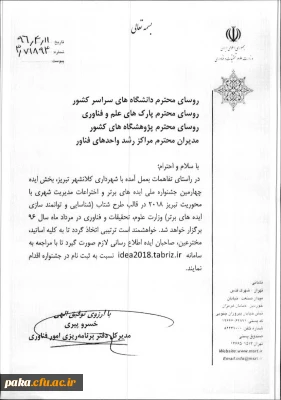 بسمه تعالی
جمهوری اسلامی ایران
تاریخ ۹۶,۴,۱۱
شماره ۳/۷۱۸۹۳
پیوست
روسای محترم دانشگاه های سراسر کشور
روسای محترم پارک های علم و فناوری
روسای محترم پژوهشگاه های کشور
مدیران محترم مراکز رشد واحدهای فناور
با سلام و احترام؛
در راستای تفاهمات بعمل آمده با شهرداری کلانشهر تبریز، بخش ایده
چهارمین جشنواره ملی ایده های برتر و اختراعات مدیریت شهری با
محوریت تبریز ۲۰۱۸ در قالب طرح شتاب (شناسایی و توانمند سازی
ایده های برتر) وزارت علوم، تحقیقات و فناوری در مرداد ماه سال ۹۶
برگزار خواهد شد. خواهشمند است ترتیبی اتخاذ گردد تا به کلیه اساتید،
مخترعین، صاحبان ایده اطلاع رسانی لازم صورت گیرد تا با مراجعه به
سامانه idea2018.tabriz.ir نسبت به ثبت نام در جشنواره اقدام
نمایند.
با آرزوی توفیق الهی
خسرو پیری
مدیر کل دفتر برنامه ریزی امور فناوری
paka.cfu.ac.ir